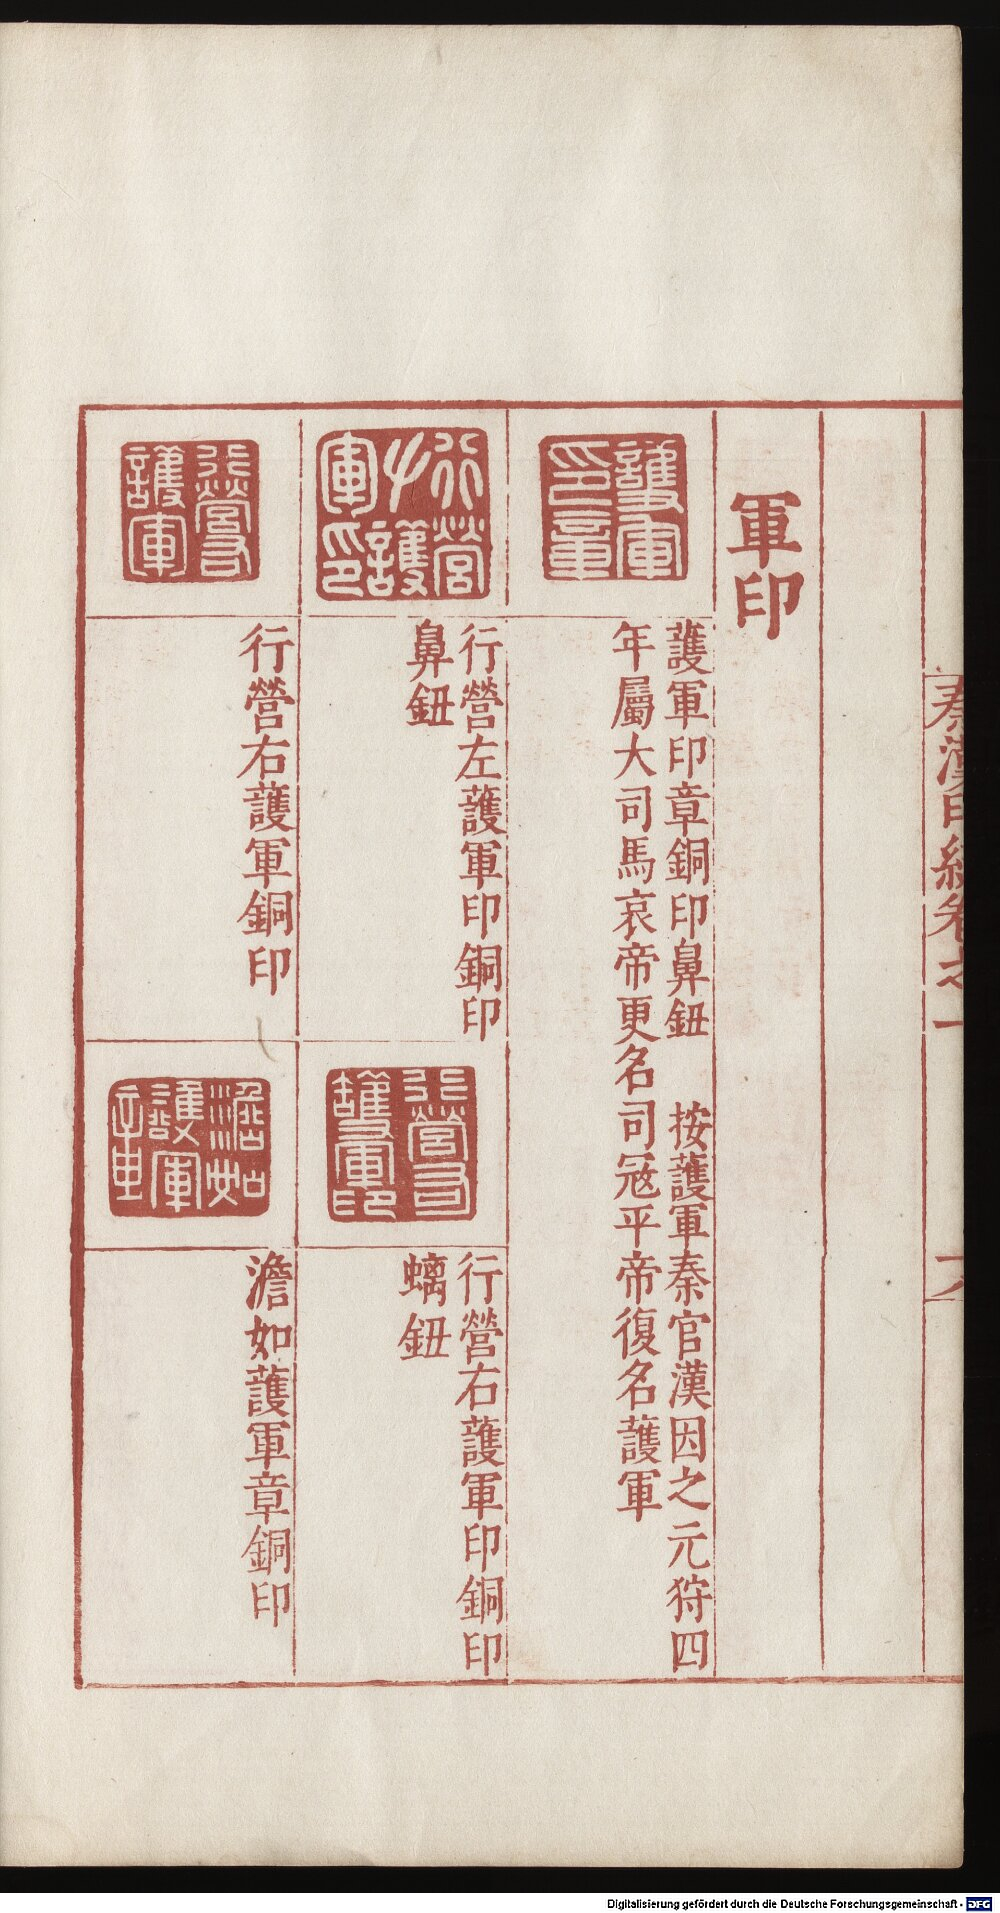 秦漢印統卷之一
軍印
護軍印章
護軍印章銅印鼻鈕　按護軍秦官漢因之元狩四
年屬大司馬哀帝更名司寇平帝復名護軍
行營左護軍印
行營左護軍印銅印
鼻鈕
行營右護軍印
行營右護軍印銅印
螭鈕
行營右護軍
行營右護軍銅印
澹如護軍章
澹如護軍章銅印
Digitalisierung gefördert durch die Deutsche Forschungsgemeinschaft - DFG